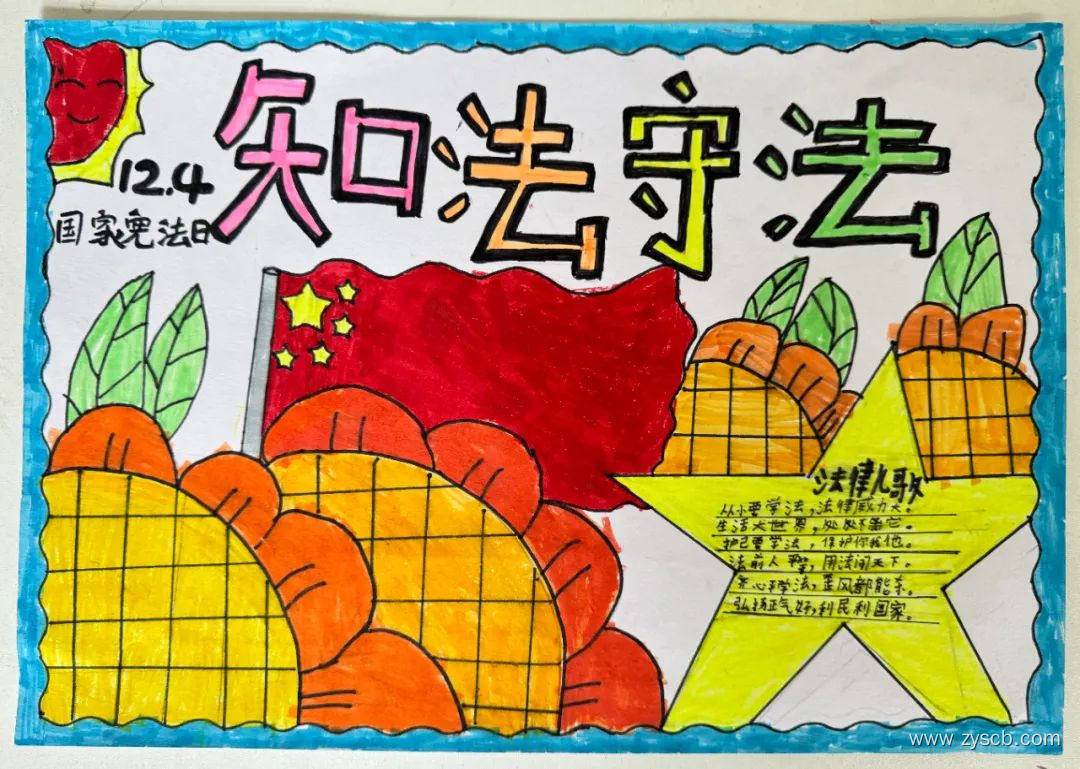 知法守法
12.4
国家宪法日
法律儿歌
从小要学法，法律威力大。
生活大世界，处处不离它。
护己要学法，保护你我他。
法前人 ，用法闯天下。
心学法，歪风都能杀。
弘扬正气好，利民利国家。
www.zyscb.com